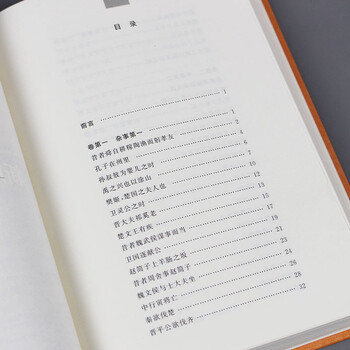 目录
前言 1
卷第一 杂事第一 1
昔者舜自耕稼陶渔而躬孝友 1
孔子在州里 4
孙叔敖为婴儿之时 5
禹之兴也以涂山 6
樊姬，楚国之夫人也 7
卫灵公之时 10
晋大夫祁奚老 12
楚文王有疾 13
昔者魏武侯谋事而当 15
卫国逐献公 17
赵简子上羊肠之坂 19
昔者周舍事赵简子 21
魏文侯与士大夫坐 23
中行寅将亡 24
秦欲伐楚 26
晋平公欲伐齐 28
32